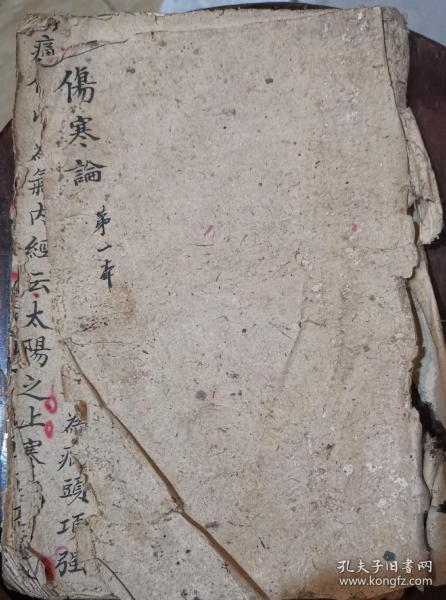 傷寒論
第一本
為 頭項強
氣內經云太陽之上寒
孔夫子旧书网
www.kongfz.com